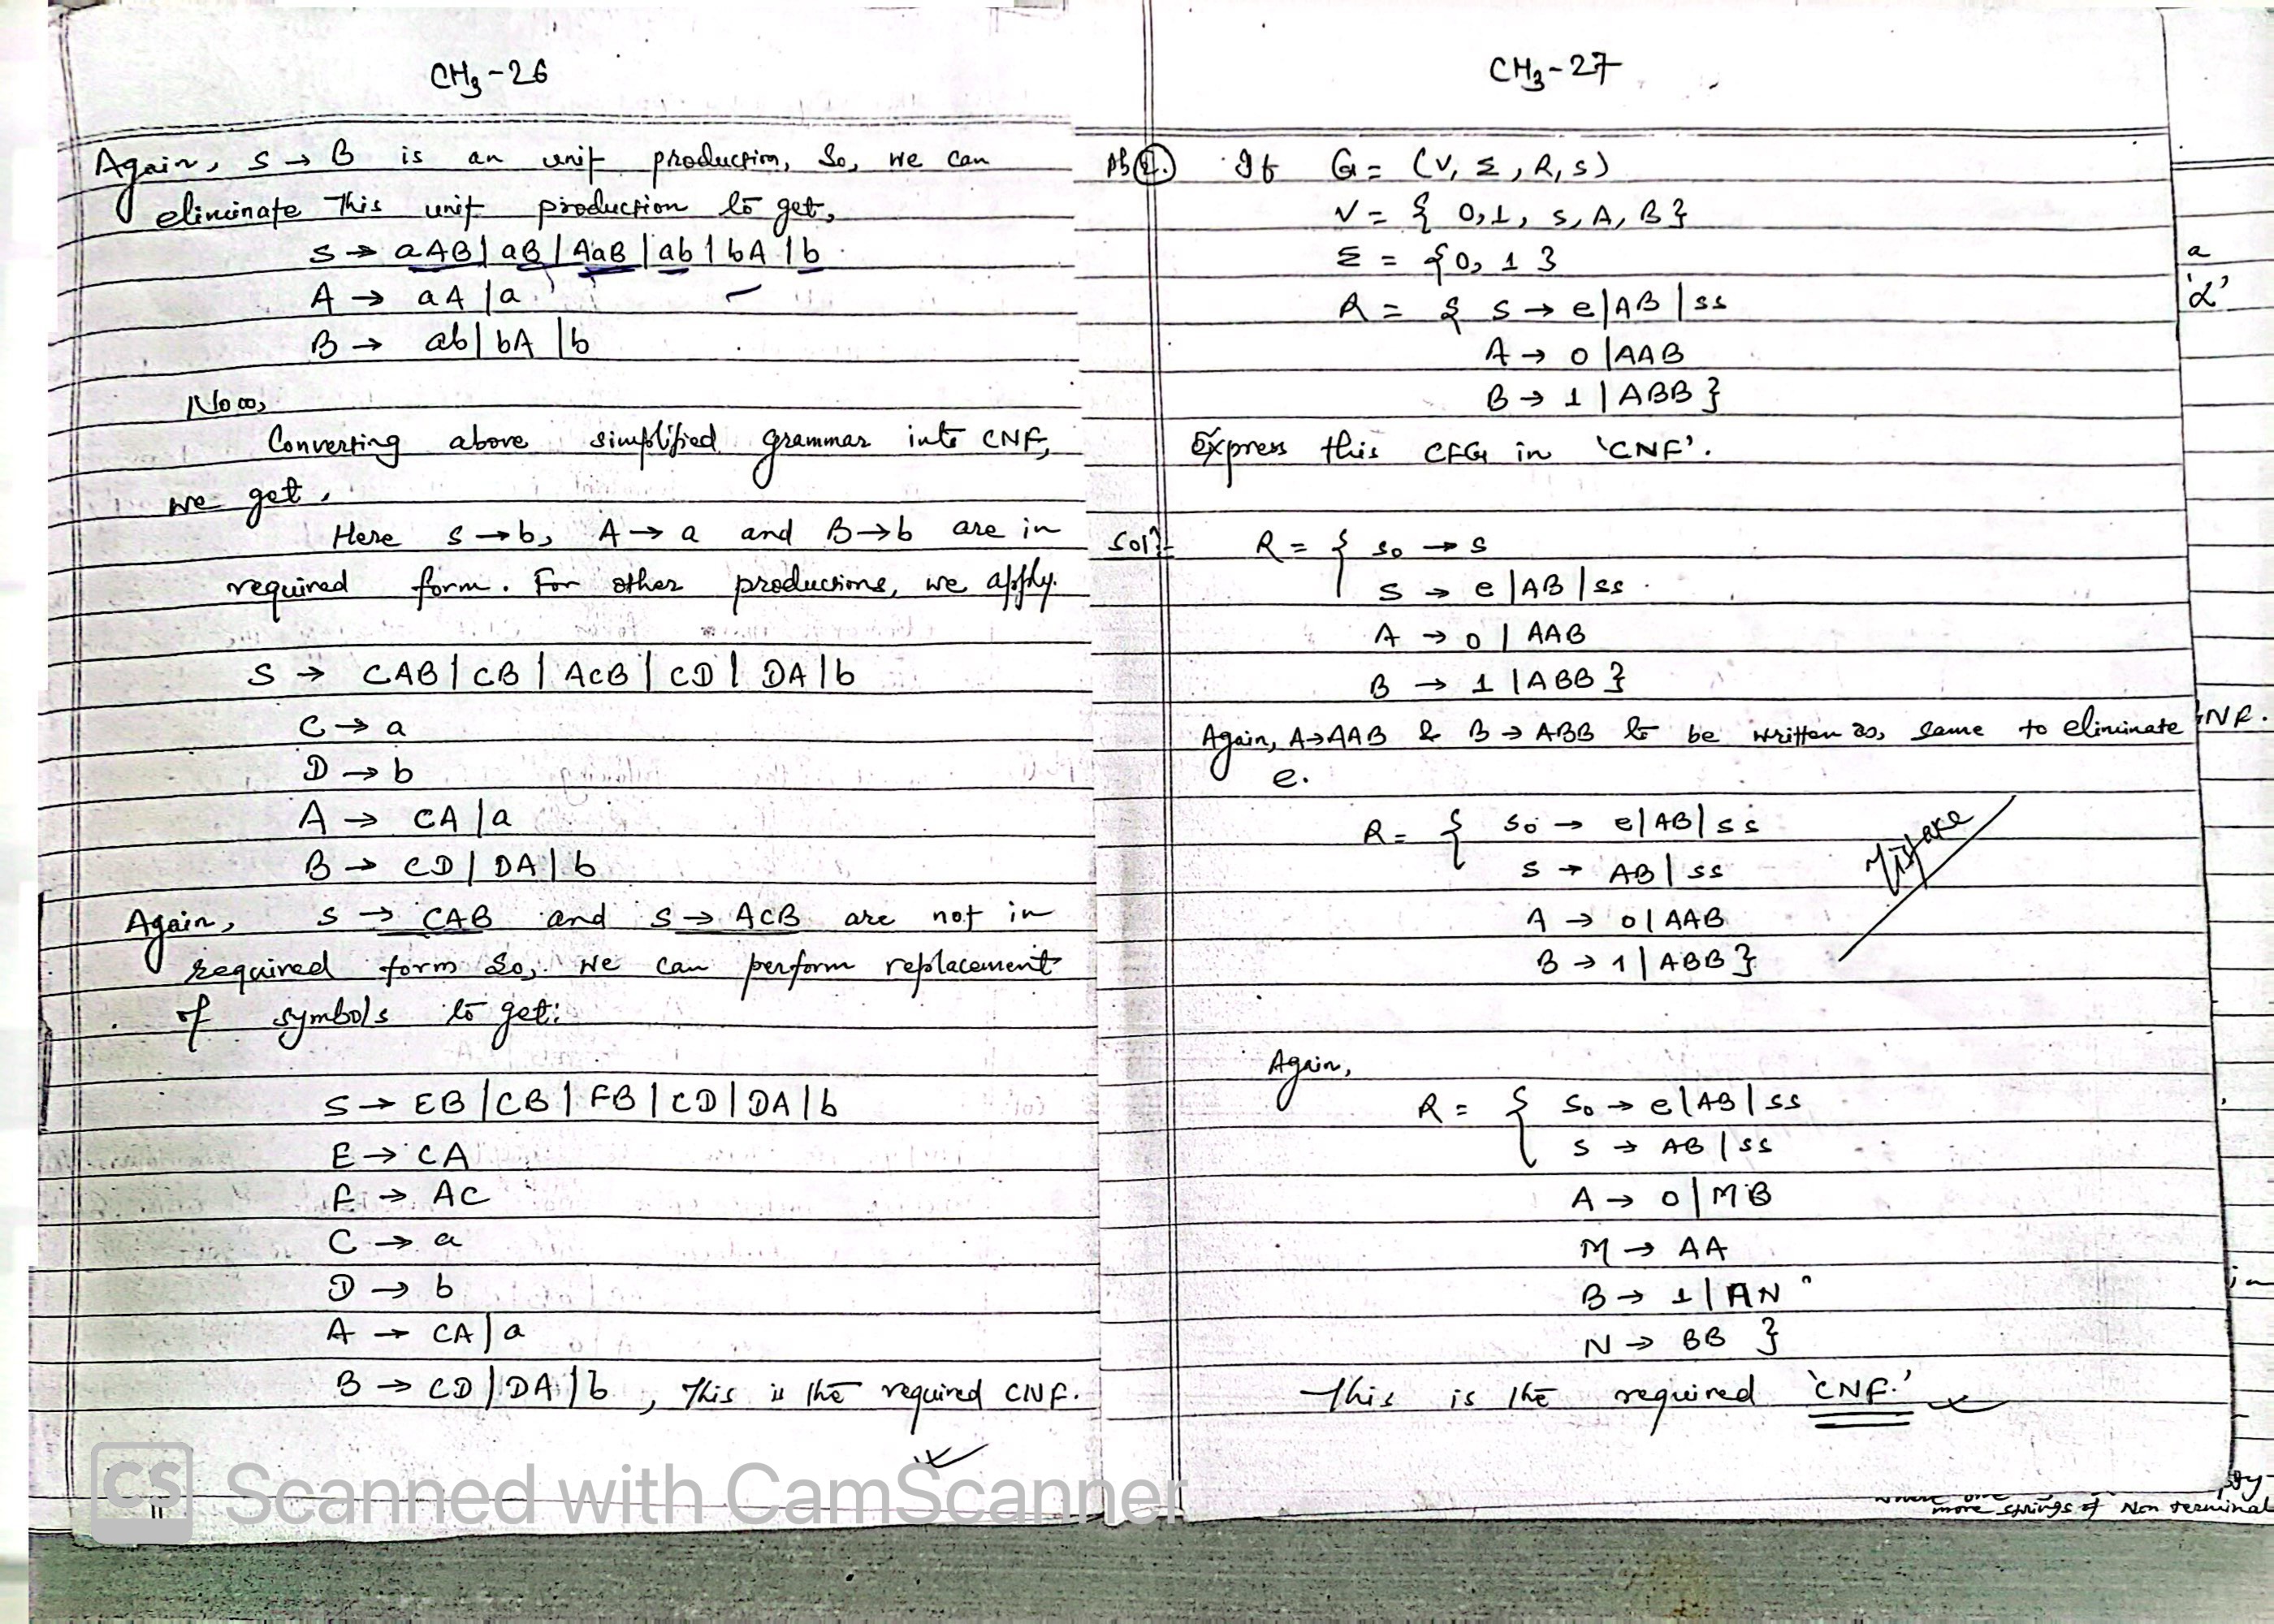 CH3-26
Again, S → B is an unit production, So, we can
eliminate This unit production to get,
S → aAB | aB | AaB | ab | bA | b
A → aA | a
B → ab | bA | b
Now,
Converting above simplified grammar into CNF,
we get,
Here S → b, A → a and B → b are in
required form. For other productions, we apply.
S → CAB | CB | ACB | CD | DA | b
C → a
D → b
A → CA | a
B → CD | DA | b
Again, S → CAB and S → ACB are not in
required form So, we can perform replacement
of symbols to get:
S → EB | CB | FB | CD | DA | b
E → CA
F → AC
C → a
D → b
A → CA | a
B → CD | DA | b , This is the required CNF.
CH3-27
2. If G = (V, Σ, R, S)
V = { 0, 1, S, A, B }
Σ = { 0, 1 }
R = { S → e | AB | SS
A → 0 | AAB
B → 1 | ABB }
Express this CFG in 'CNF'.
Solⁿ:- R = { S0 → S
S → e | AB | SS
A → 0 | AAB
B → 1 | ABB }
Again, A → AAB & B → ABB to be written as, same to eliminate
e.
R = { S0 → e | AB | SS
S → AB | SS
A → 0 | AAB
B → 1 | ABB }
Mistake
Again,
R = { S0 → e | AB | SS
S → AB | SS
A → 0 | MB
M → AA
B → 1 | AN
N → BB }
This is the required 'CNF.'
a
'α'
NF.
in
more strings of Non terminal
CS Scanned with CamScanner